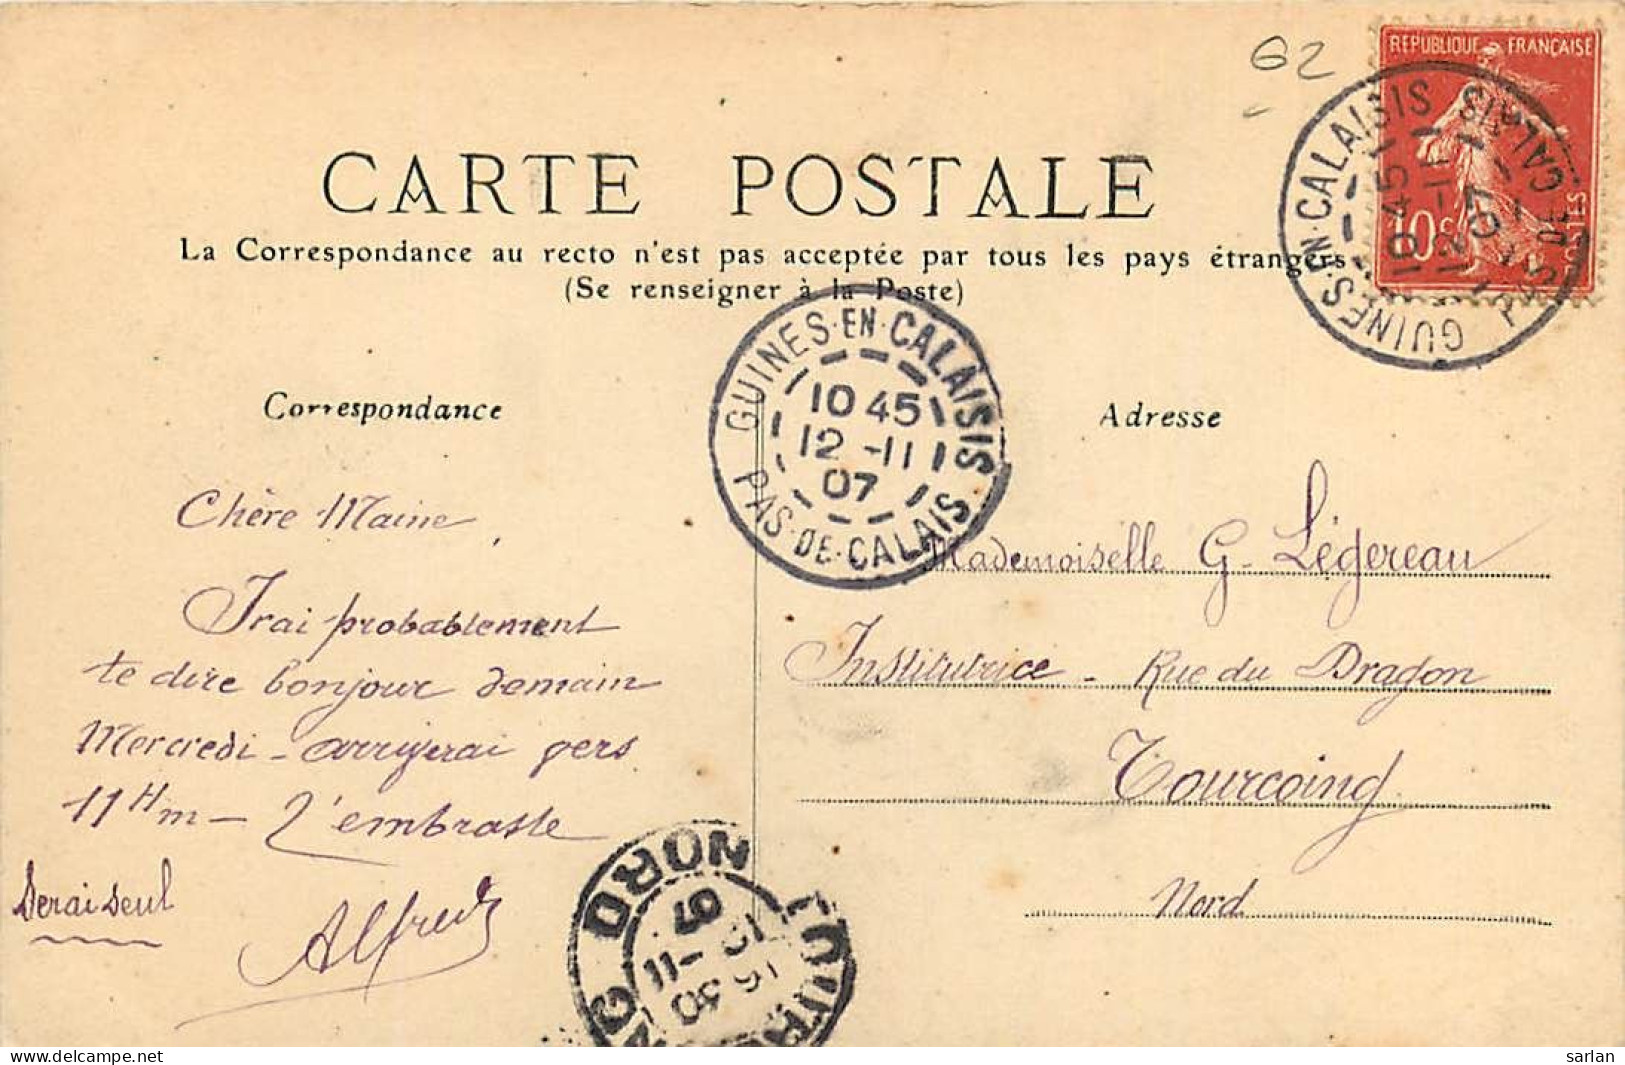 62
REPUBLIQUE FRANÇAISE
10c
POSTES
GUINES·EN·CALAISIS
10 45
12 -11
07
PAS·DE·CALAIS
CARTE POSTALE
La Correspondance au recto n'est pas acceptée par tous les pays étrangers
(Se renseigner à la Poste)
GUINES·EN·CALAISIS
10 45
12 -11
07
PAS·DE·CALAIS
Correspondance
Chère Maine,
Irai probablement
te dire bonjour demain
Mercredi - arriverai vers
11 H m - T'embrasse
Serai seul
Alfred
Adresse
Mademoiselle G. Légereau
Institutrice - Rue du Dragon
Tourcoing
Nord
NORD
16 30
12 -11
07
delcampe.net
sarlan